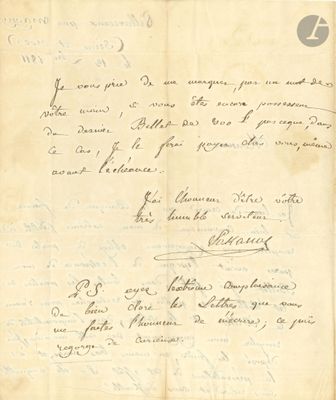 Je vous prie de me marquer, par un mot de
votre main, si vous êtes encore possesseur
du dernier Billet de 200 parceque, dans
ce cas, Je le ferai payer chés vous, même
avant l'échéance.
J'ai l'honneur d'être votre
très humble serviteur
P.S. ayez l'extrême complaisance
de bien cloré les Lettres que vous
me faites l'honneur de m'écrire, ce païs
regorge de curieux.